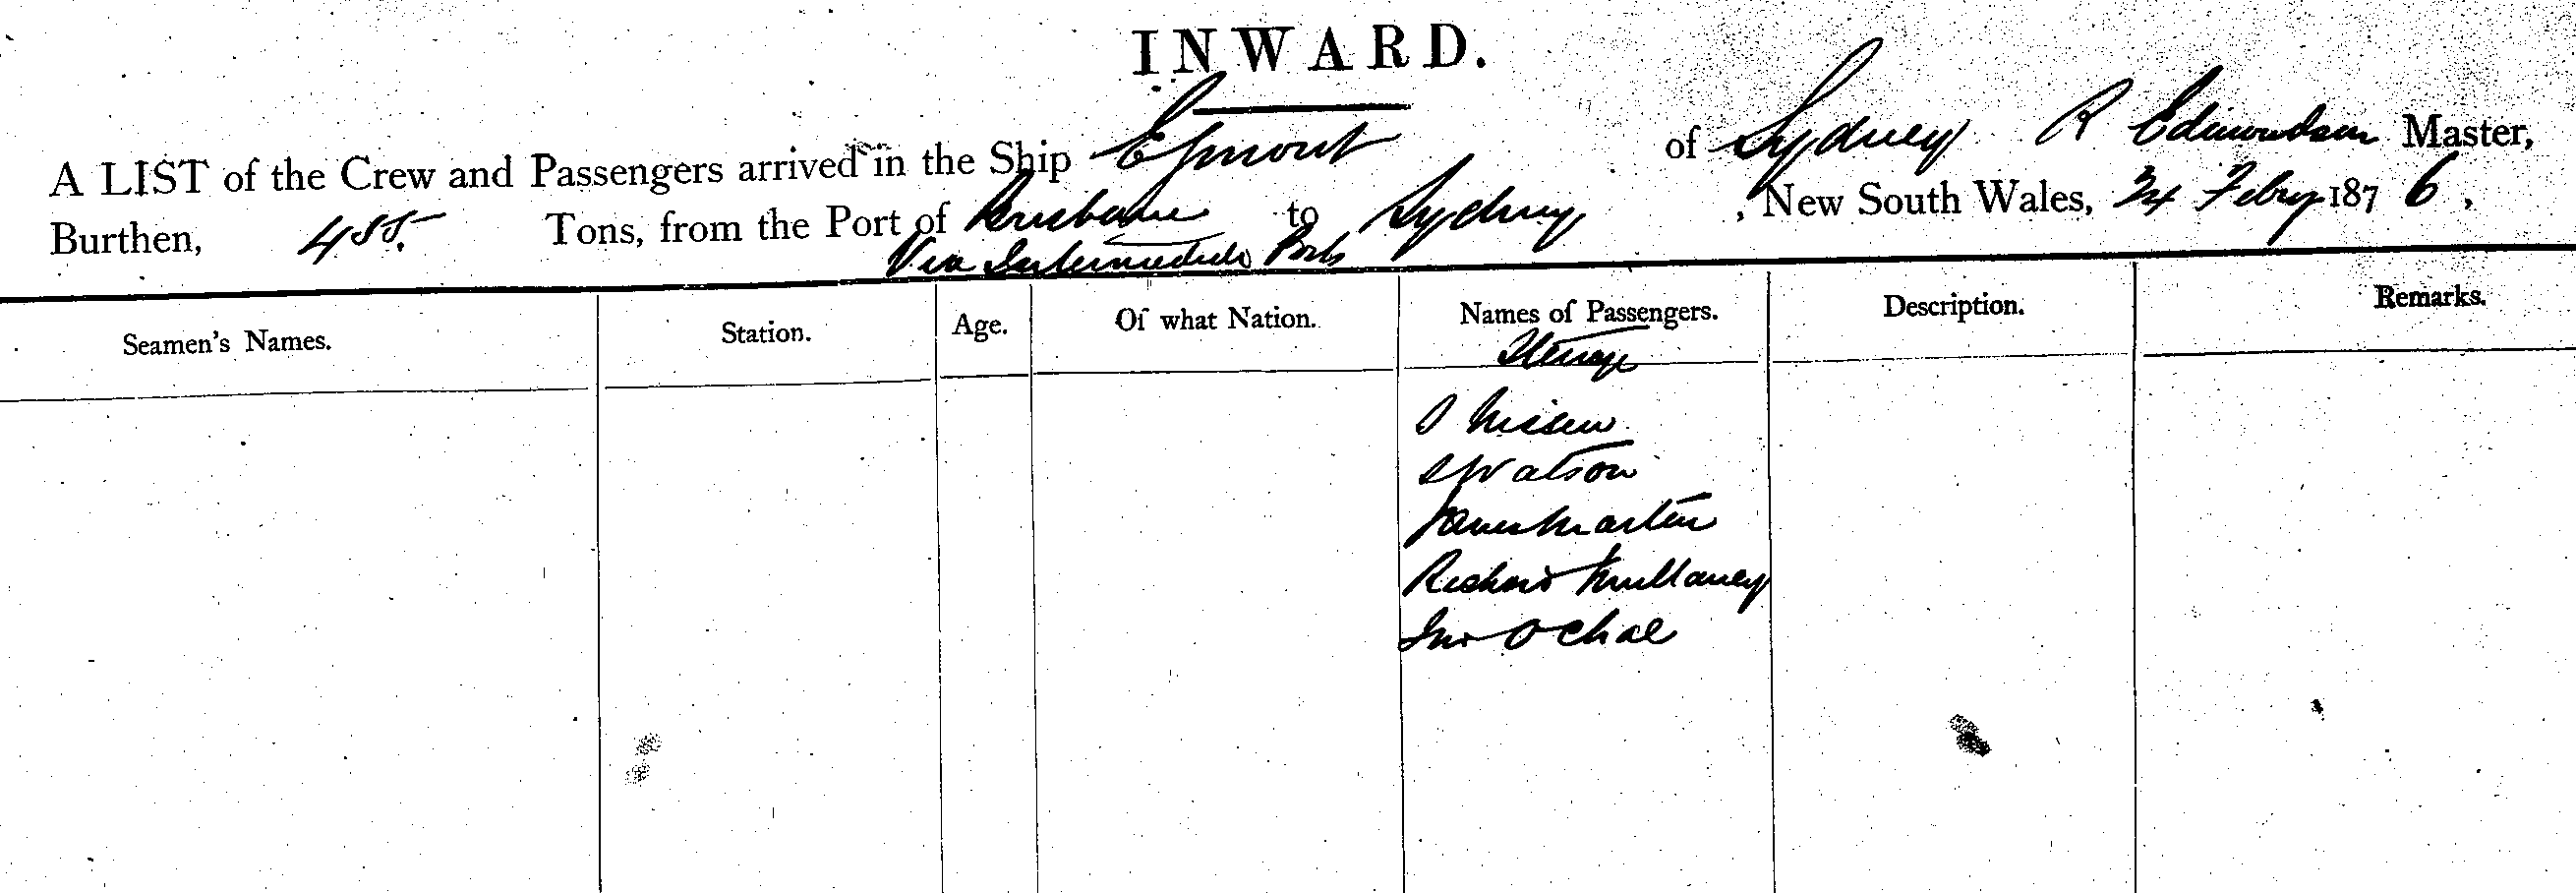 INWARD.
A LIST of the Crew and Passengers arrived in the Ship Egmont of Sydney R Edmondson Master,
Burthen, 455. Tons, from the Port of Brisbane to Sydney, New South Wales, 24 Febry 1876,
Via Intermediate Ports
Seamen's Names. Station. Age. Of what Nation. Names of Passengers. Description. Remarks.
Steerage
Nissen
S Watson
James Martin
Richard